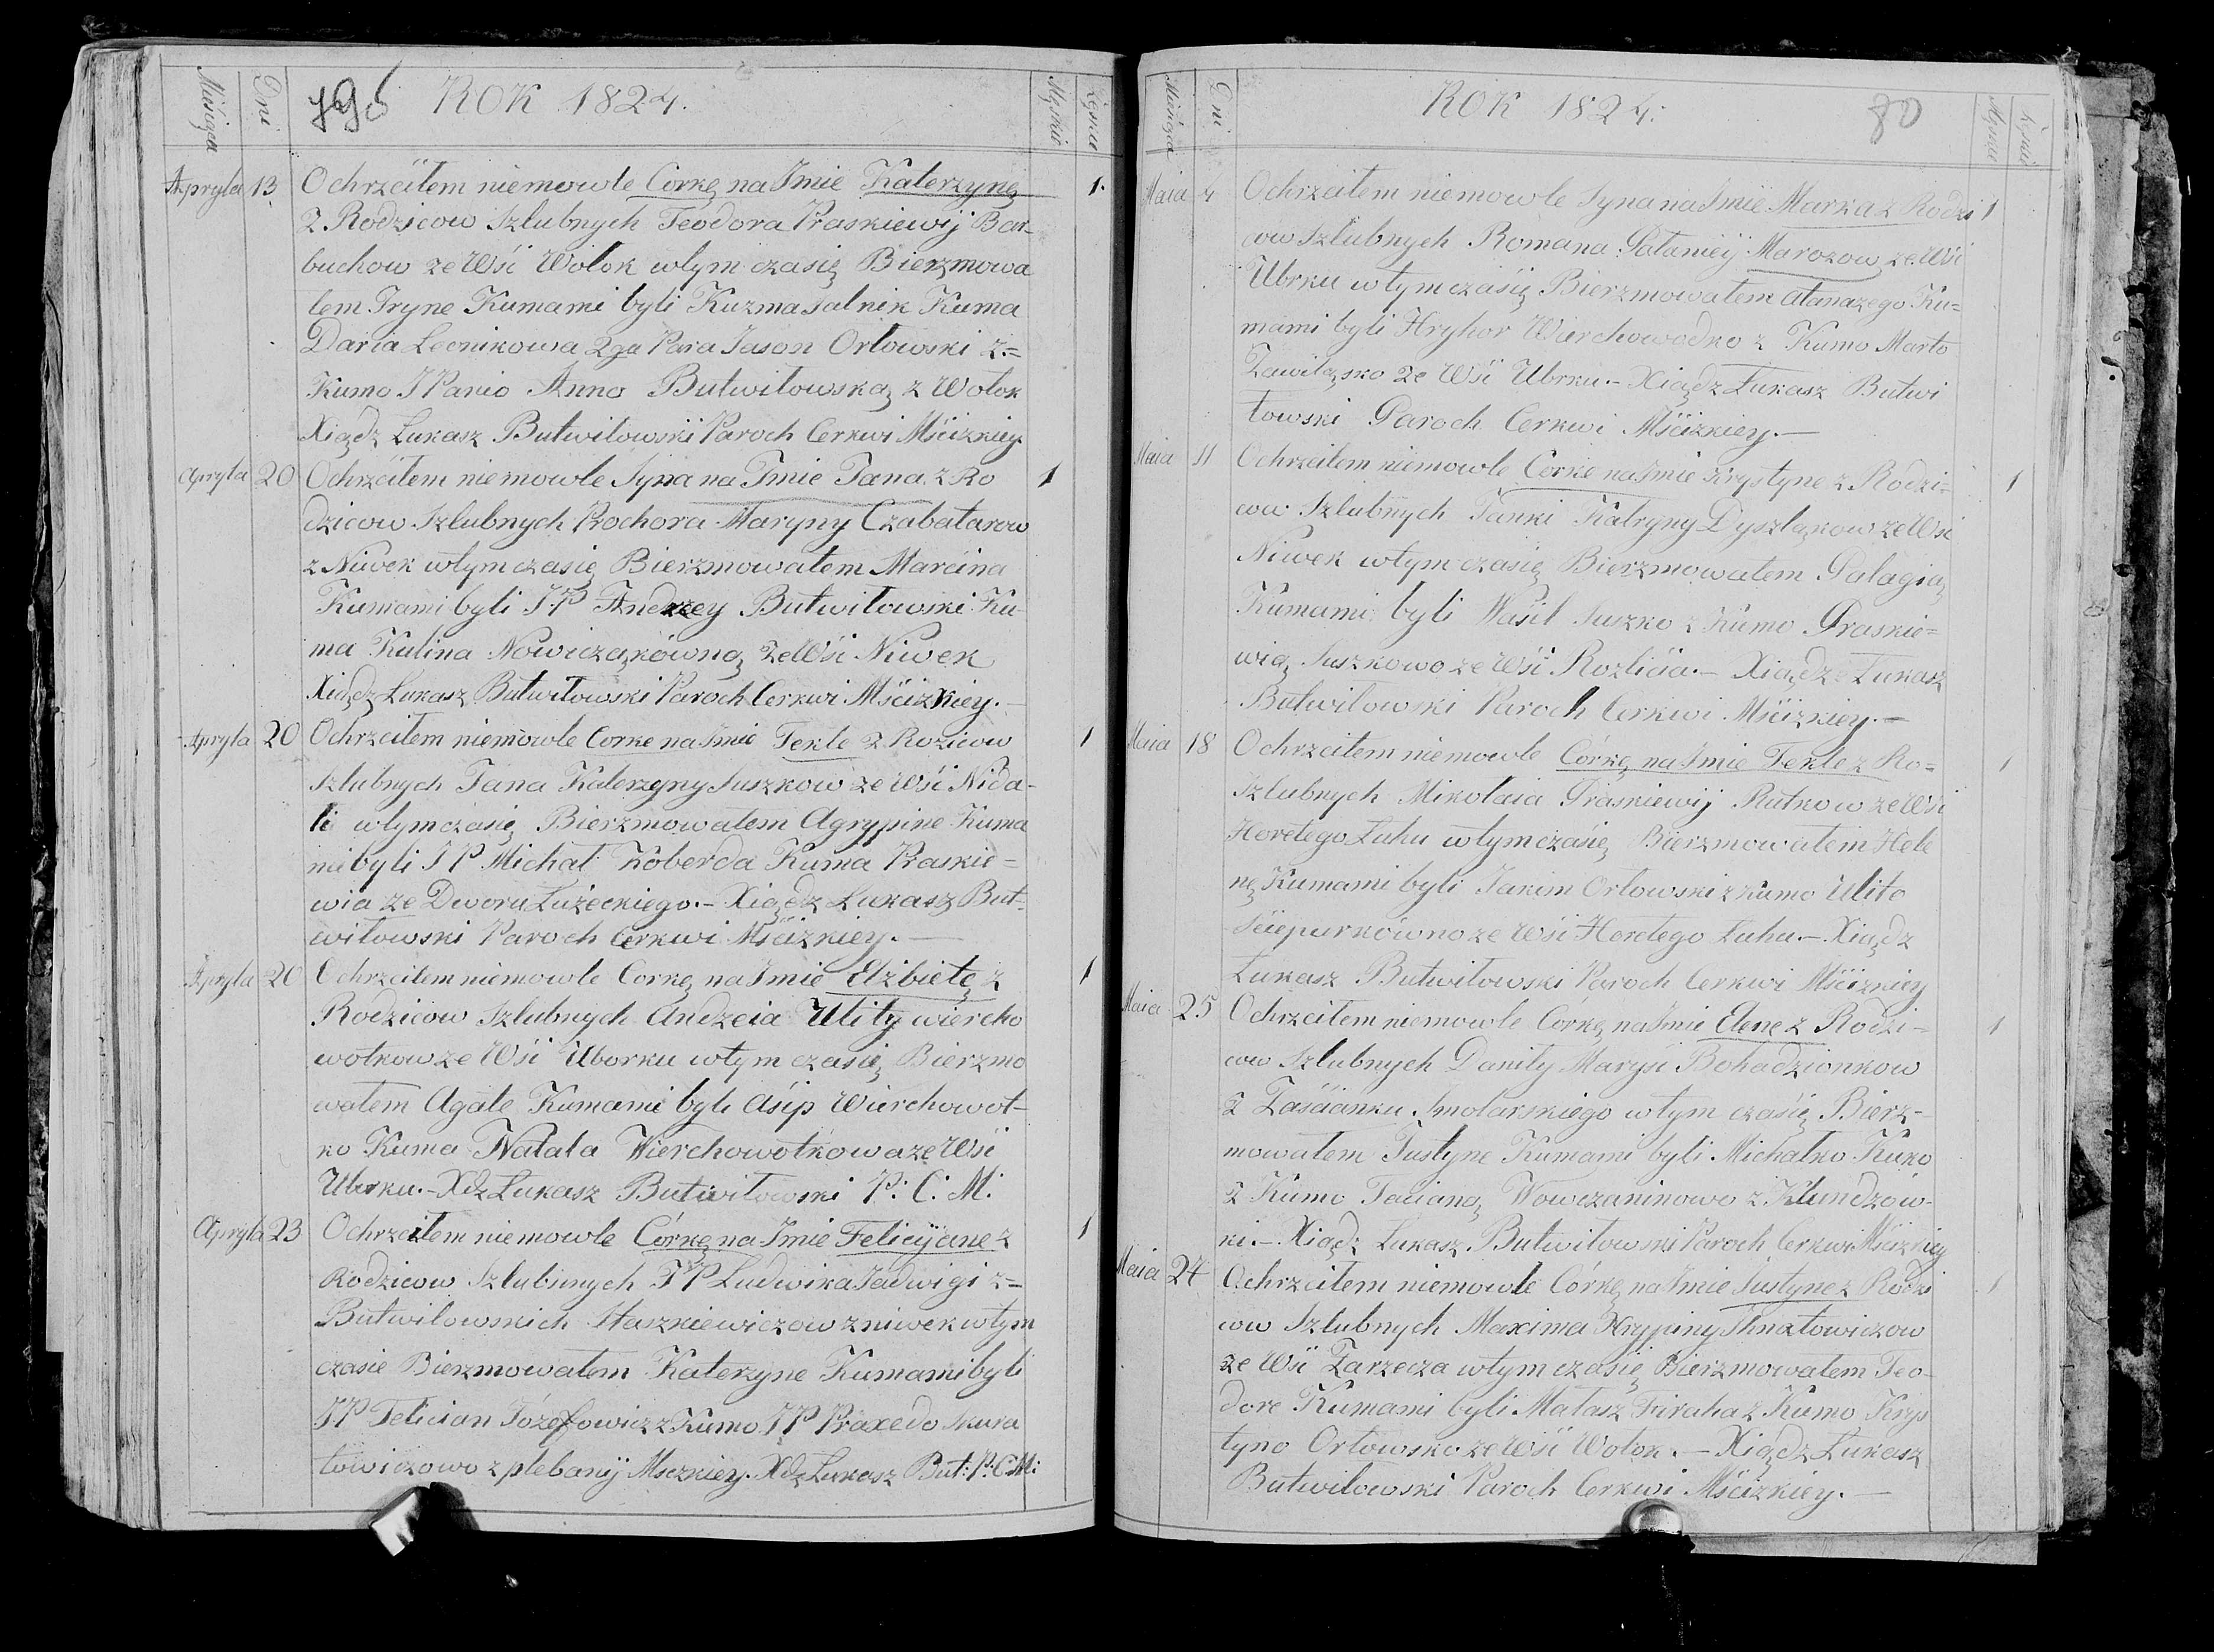 Miesiąca Dni 79b ROK 1824. Męskie Zęskie
Apryla 13 Ochrzciłem niemowle Corkę na Jmie Katerzynę 1.
z Rodzicow Szlubnych Teodora Praskiewij Bar-
buchow ze Wśi Wołok wtym czasię Bierzmowa
łem Jryne Kumami byli Kuzma Salnik Kuma
Daria Leonikowa 2ga Para Jason Orłowski z=
Kumo J Panio Anno Butwiłowską z Wołok
Xiądz Łukasz Butwiłowski Paroch Cerkwi Mścizkiey
Apryla 20 Ochrzciłem niemowle Syna na Jmie Jana z Ro 1
dzicow Szlubnych Prochora Maryny Czabatarow
z Niwek wtym czasię Bierzmowałem Marcina
Kumami byli JP Andrzey Butwiłowski Ku-
ma Kulina Nowicząkówną ze Wśi Niwek
Xiądz Łukasz Butwiłowski Paroch Cerkwi Mścizkiey.
Apryla 20 Ochrzciłem niemowle Corke na Jmie Tekle z Rozicow 1
Szlubnych Jana Katerzyny Suszkow ze Wśi Nida-
li wtym czasię Bierzmowałem Agrypine Kuma
mi byli JP Michał Koberda Kuma Praskie=
wia ze Dworu Łużeckiego.- Xiądz Łukasz But-
wiłowski Paroch Cerkwi Mścizkiey.
Apryla 20 Ochrzciłem niemowle Corkę na Jmie Elżbietę z 1
Rodzicow Szlubnych Andzeia Ulity wiercho
wotkow ze Wśi Uborku wtym czasię Bierzmo
wałem Agate Kumami byli Asip Wierchowot-
ko Kuma Natala Wierchowotkowa ze Wśi
Ubrku.- Xdz Łukasz Butwiłowski P: C: M:
Apryla 23 Ochrzciłem niemowle Córkę na Jmie Felicyjane z 1
Rodzicow Szlubnnych JP Ludwika Jadwigi z=
Butwiłowskich Staszkiewiczow z niwek wtym
czasie Bierzmowałem Katerzyne Kumami byli
JP Felician Józefowicz z Kumo JP Praxedo Skura
towiczowo z plebanij Msczkiey. Xdz Łukasz But: P: C: M:
Miesiąca Dni ROK 1824: 80 Męskie Zęskie
Maia 4 Ochrzciłem niemowle Syna na Jmie Marka z Rodzi 1
cow Szlubnych Romana Pałaniey Marozow ze Wśi
Ubrku wtym czásię Bierzmowałem Atanazego Ku=
mami byli Hryhor Wierchowodko z Kumo Marto
Zawiląsko ze Wśi Ubrku.- Xiądz Łukasz Butwi
łowski Paroch Cerkwi Mścizkiey.-
Maia 11 Ochrzciłem niemowle Corke na Jmie Krystyne z Rodzi= 1
cow Szlubnych Janki Katryny Dyszląkow ze Wsi
Niwek wtym czasię Bierzmowałem Palagią
Kumami byli Wasil Suszko z Kumo Praskie=
wią Suszkowo ze Wśi Rozlićia.- Xiądz Łukasz
Butwiłowski Paroch Cerkwi Mścizkiey.-
Maia 18 Ochrzciłem niemowle Córkę na Jmie Tekle z Ro= 1
Szlubnych Mikołaia Praskiewij Rutkow ze Wśi
Horełego Łuhu wtym czasię Bierzmowałem Hele
nę Kumami byli Jakim Orłowski z Kumo Ulito
Sciepurkówno ze Wśi Horełego Łuhu.- Xiądz
Łukasz Butwiłowski Paroch Cerkwi Mścizkiey
Maia 25 Ochrzciłem niemowle Córkę na Jmie Elenę z Rodzi- 1
cow Szlubnych Daniły Marysi Bohadzionkow
z Zaśćianku Smolarskiego wtym czásię Bierz-
mowałem Justyne Kumami byli Michałko Kuko
z Kumo Tacianą Wowczaninowo z Klundzów-
ki.- Xiądz Łukasz Butwiłowski Paroch Cerkwi Mścizkiey
Maia 27 Ochrzciłem niemowle Córkę na Jmie Justyne z Rodzi 1
cow Szlubnych Maxima Hrypiny Jhnatowiczow
ze Wśi Zarzecza wtym czasię Bierzmowałem Teo-
dore Kumami byli Matasz Firaha z Kumo Krys
tyno Orłowsko ze Wśi Wołok.- Xiądz Łukasz
Butwiłowski Paroch Cerkwi Mścizkiey.-